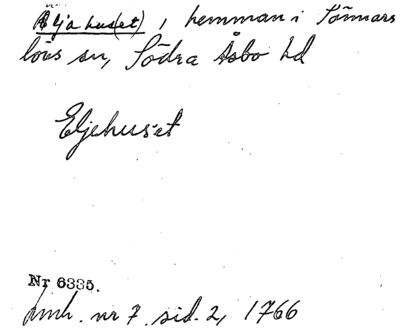 Äljahus(et), hemman i Tönnars
lövs sn, Södra Åsbo hd
Eljehuset
Nr 6335.
Jmh. nr 7 sid. 2, 1766